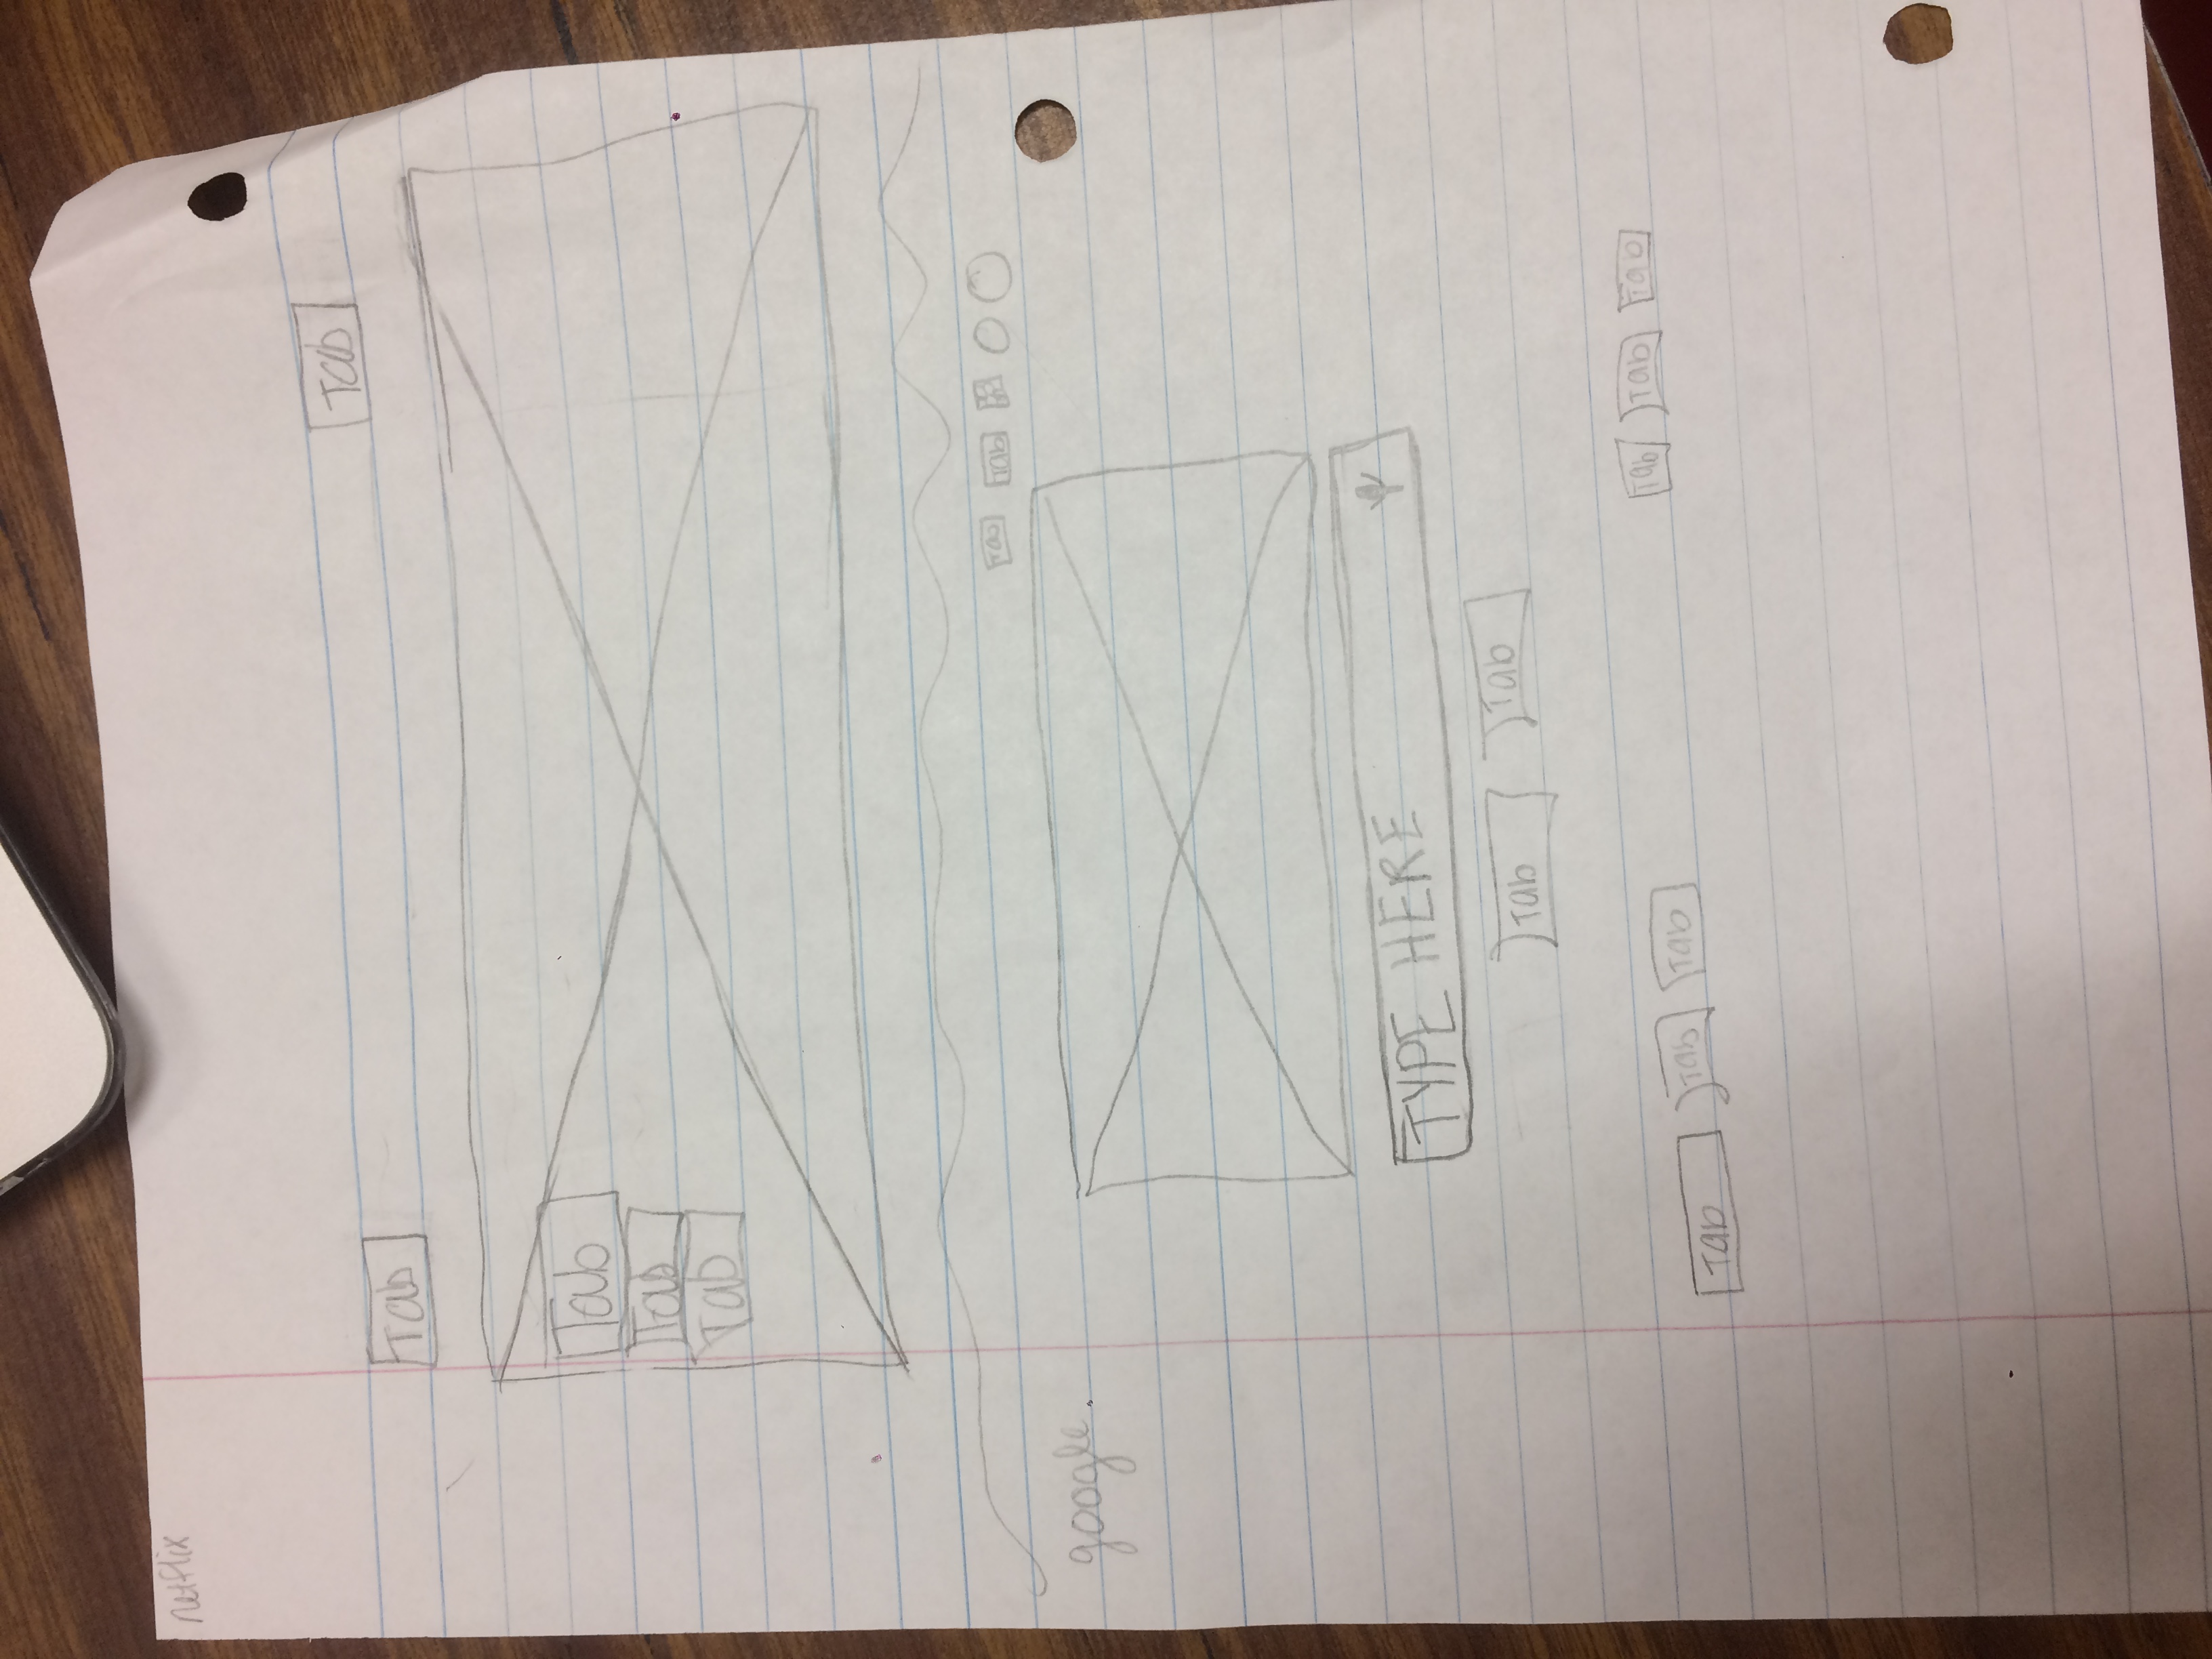 netflix
Tab Tab
Tab
Tab
Tab
google
Tab Tab
TYPE HERE
Tab Tab
Tab Tab Tab Tab Tab Tab